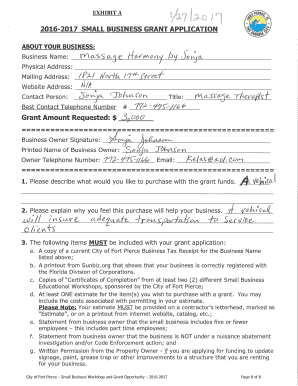 EXHIBIT A
1/27/2017
2016-2017 SMALL BUSINESS GRANT APPLICATION
ABOUT YOUR BUSINESS:
Business Name: Massage Harmony by Sonja
Physical Address:
Mailing Address: 1821 North 17th Street
Website Address: N/A
Contact Person: Sonja Johnson Title: Massage Therapist
Best Contact Telephone Number # 772-475-1166
Grant Amount Requested: $ 3,000
Business Owner Signature: Sonja Johnson
Printed Name of Business Owner: Sonja Johnson
Owner Telephone Number: 772-475-1166 Email:
1. Please describe what would you like to purchase with the grant funds. A vehical
2. Please explain why you feel this purchase will help your business. A vehical
will insure adequate transportation to service
clients
3. The following items MUST be included with your grant application:
a. A copy of a current City of Fort Pierce Business Tax Receipt for the Business Name
listed above;
b. A printout from Sunbiz.org that shows that your business is currently registered with
the Florida Division of Corporations.
c. Copies of "Certificates of Completion" from at least two (2) different Small Business
Educational Workshops, sponsored by the City of Fort Pierce;
d. At least ONE estimate for the item(s) you wish to purchase with a grant. You may
include the costs associated with permitting in your estimate.
Please Note: Your estimate MUST be provided on a contractor's letterhead, marked as
"Estimate", or on a printout from internet website, catalog, etc.;
e. Statement from business owner that the small business includes five or fewer
employees – this includes part time employees;
f. Statement from business owner that the business is NOT under a nuisance abatement
investigation and/or Code Enforcement action; and
g. Written Permission from the Property Owner - if you are applying for funding to update
signage, paint, grease trap or other improvements to a structure that you are renting
for your business.
City of Fort Pierce – Small Business Workshop and Grant Opportunity - 2016-2017 Page 8 of 8